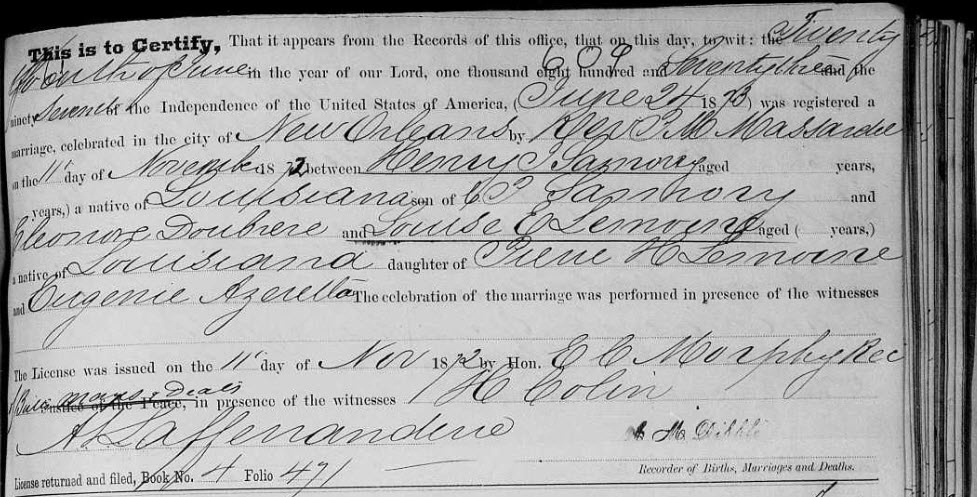 This is to Certify, That it appears from the Records of this office, that on this day, to wit: the Twenty
fourth of June in the year of our Lord, one thousand eight hundred and Seventy three and the
ninety Seventh of the Independence of the United States of America, (June 24 1873) was registered a
marriage, celebrated in the city of New Orleans by Rev P. M. Massardier
on the 11" day of November 1872 between Henry P Samory aged years,
years,) a native of Louisiana son of C P Samory and
Eleonore Doubrere and Louise E Lemoine aged ( years,)
a native of Louisiana daughter of Pierre H Lemoine
and Eugenie Azeretto The celebration of the marriage was performed in presence of the witnesses
The License was issued on the 11" day of Nov 1872 by Hon. E C Morphy Rec
of Births Marrs & Deaths Justice of the Peace, in presence of the witnesses H Colin
A. Laffenandene
License returned and filed, Book No. 4 Folio 471
Recorder of Births, Marriages and Deaths.